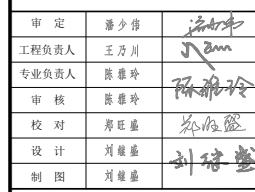 审 定 潘少伟 潘少伟
工程负责人 王乃川
专业负责人 陈雅玲 陈雅玲
审 核 陈雅玲
校 对 郑旺盛 郑旺盛
设 计 刘继盛 刘继盛
制 图 刘继盛